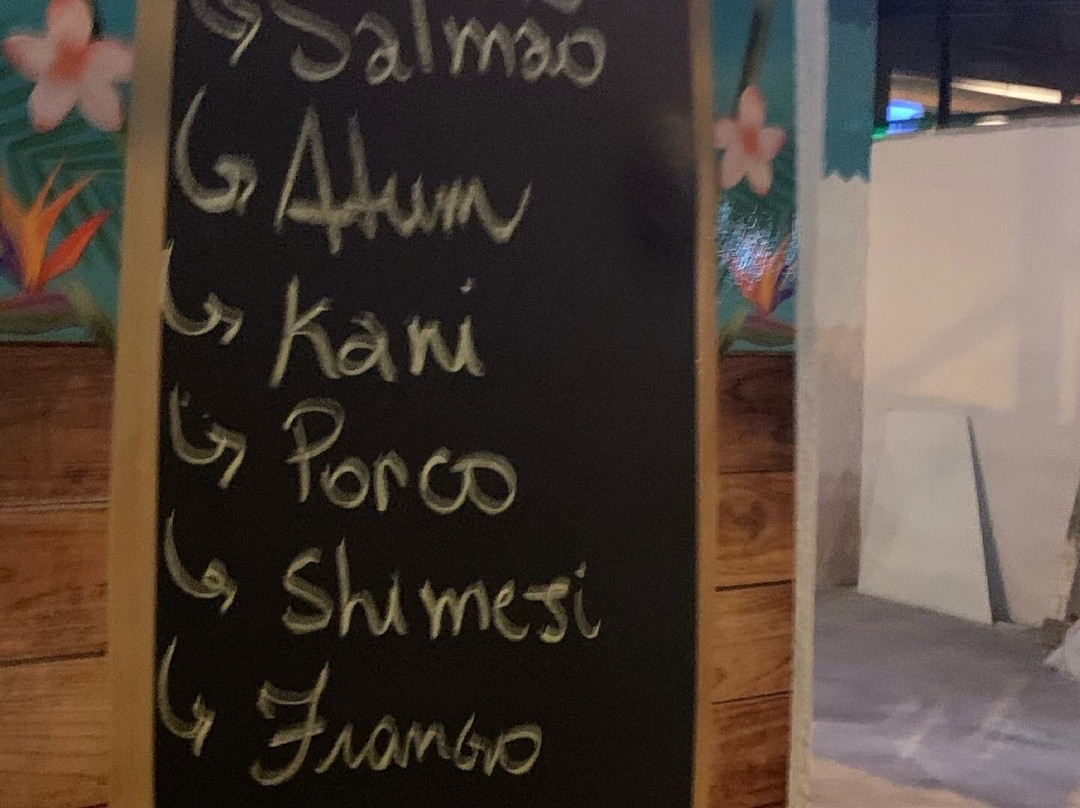 Salmão
Atum
Kani
Porco
Shimeji
Frango